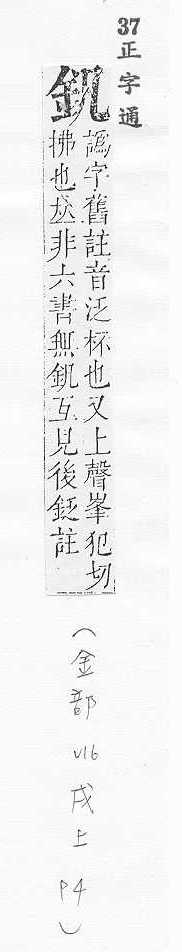 37正字通
釩
譌字舊註音泛杯也又上聲峯犯切
拂也𠀤非六書無釩互見後註
(金部 V16 戌上 P4)